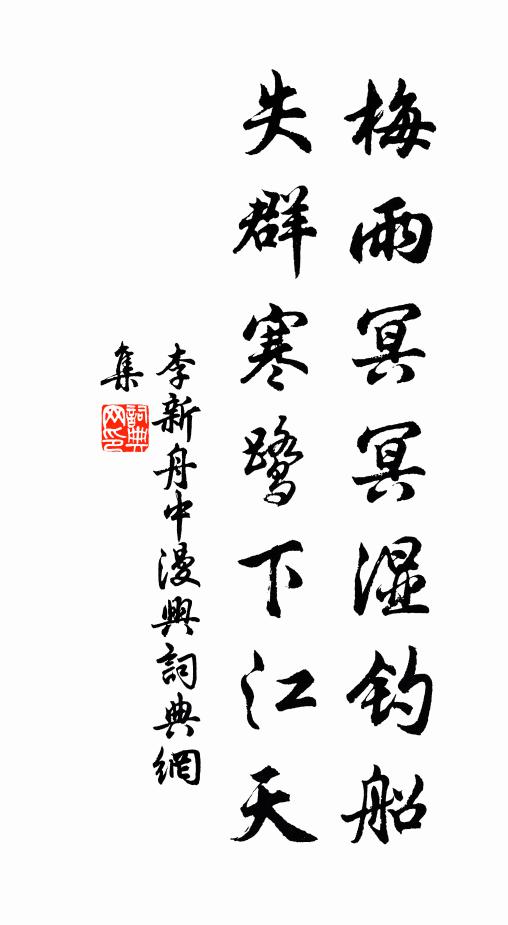 梅雨冥冥湿钓船
失群寒鹭下江天
李新舟中漫興詞典網
集
詞典
网印